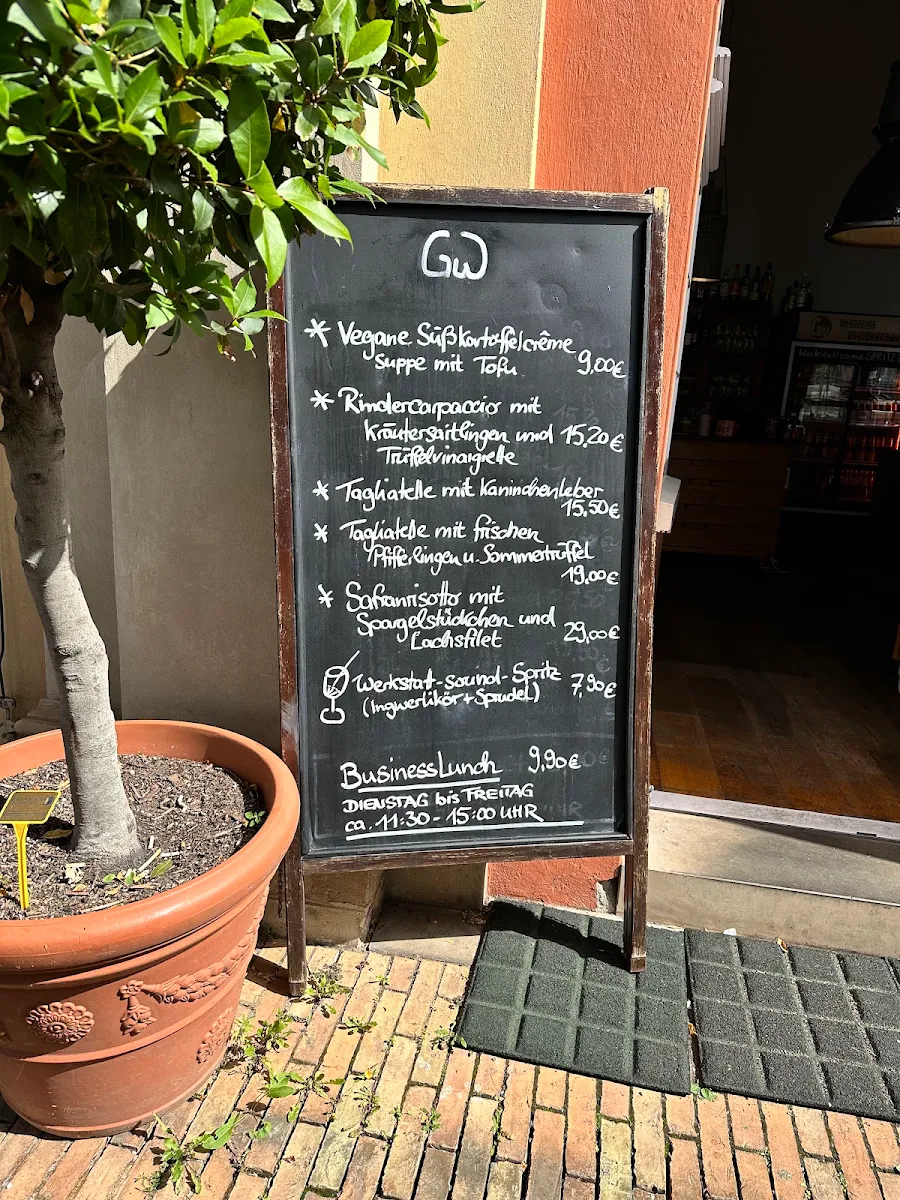 GW
* Vegane Süßkartoffelcrême
suppe mit Tofu 9,00€
* Rindercarpaccio mit
Kräutersaitlingen und 15,20€
Trüffelvinaigrette
* Tagliatelle mit Kaninchenleber
15,50€
* Tagliatelle mit frischen
Pfifferlingen u. Sommertrüffel
19,00€
* Safranrisotto mit
Spargelstückchen und
Lachsfilet 29,00€
Werkstat-sound-Spritz 7,90€
(Ingwerlikör+Sprudel)
BusinessLunch 9,90€
DIENSTAG bis FREITAG
ca. 11:30 - 15:00 UHR